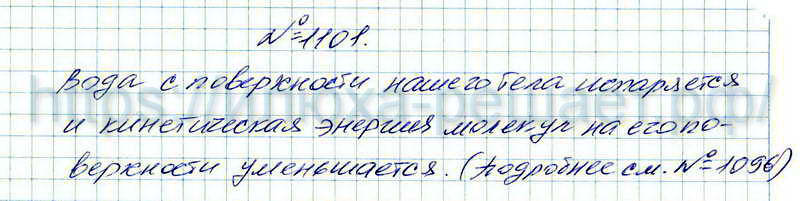 №1101.
Вода с поверхности нашего тела испаряется
и кинетическая энергия молекул на его по-
верхности уменьшается. (Подробнее см. №1096)